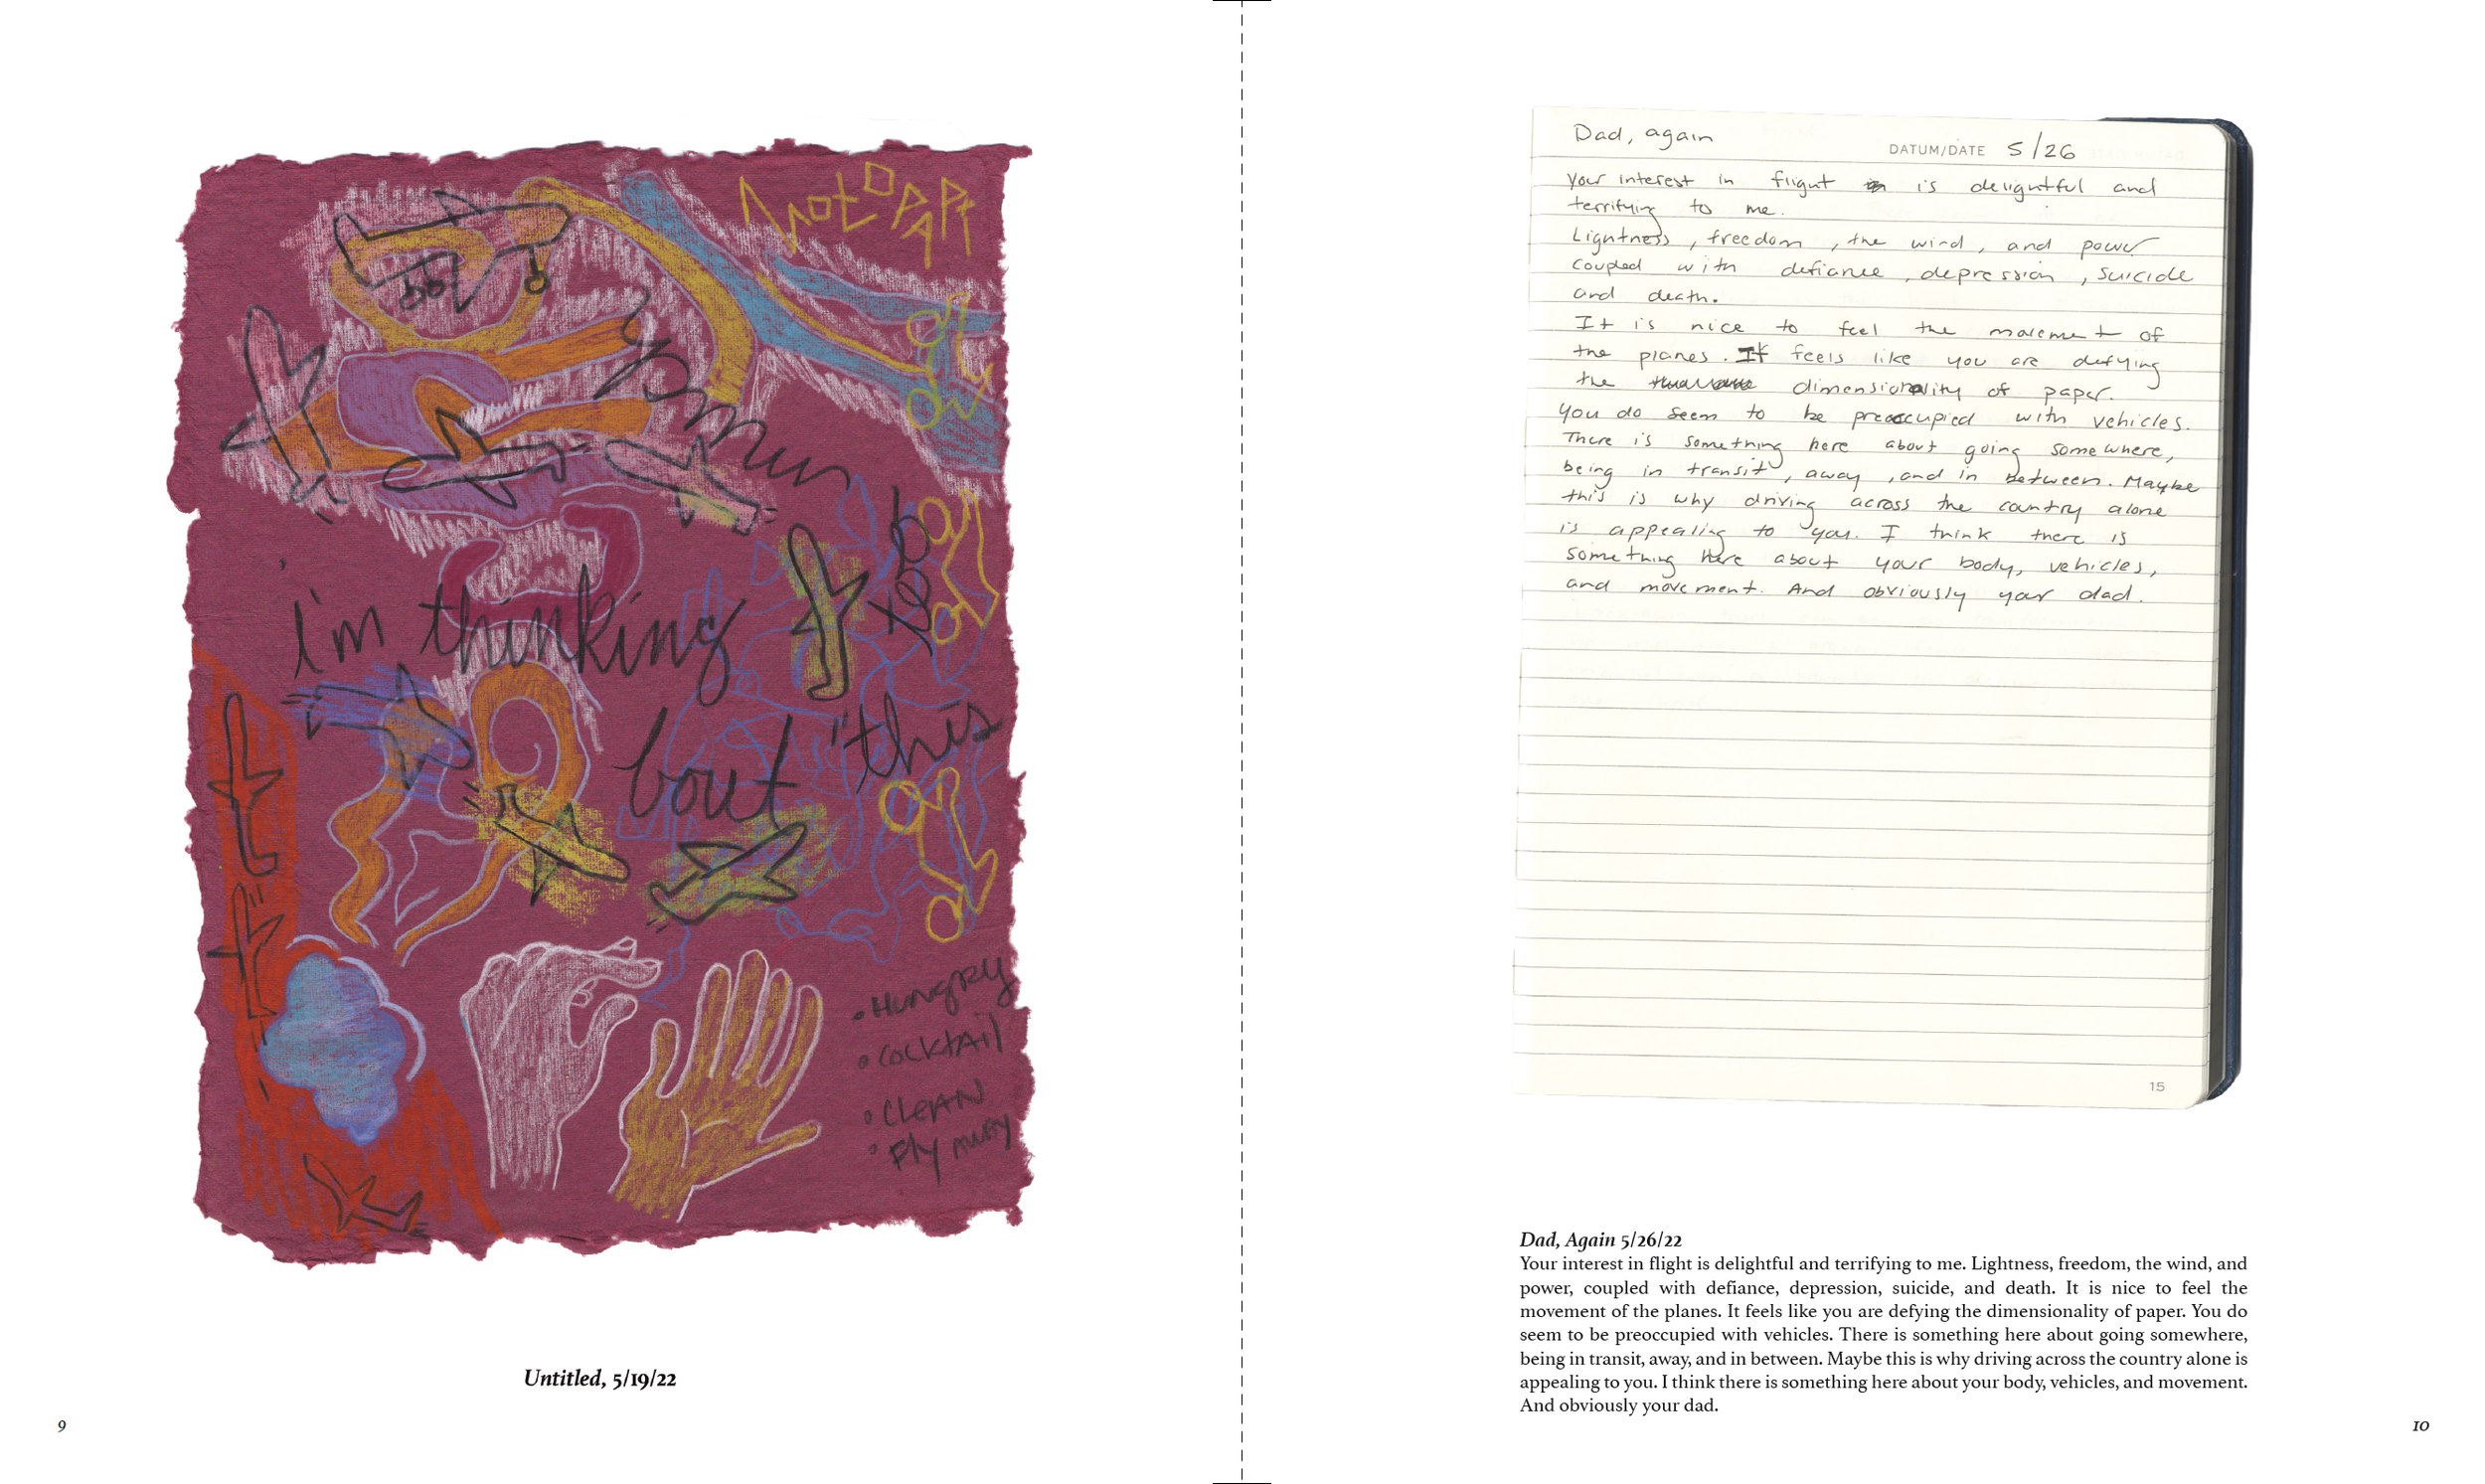 i'm thinking
bout "this
• HUngRy
• COCKtAil
• CleAN
• Fly AwAy
Untitled, 5/19/22
9
Dad, again
DATUM/DATE 5/26
Your interest in flight is delightful and
terrifying to me.
Lightness, freedom, the wind, and power
coupled with defiance, depression, suicide
and death.
It is nice to feel the movement of
the planes. It feels like you are defying
the dimensionality of paper.
You do seem to be preoccupied with vehicles.
There is something here about going somewhere,
being in transit, away, and in between. Maybe
this is why driving across the country alone
is appealing to you. I think there is
something here about your body, vehicles,
and movement. And obviously your dad.
15
Dad, Again 5/26/22
Your interest in flight is delightful and terrifying to me. Lightness, freedom, the wind, and
power, coupled with defiance, depression, suicide, and death. It is nice to feel the
movement of the planes. It feels like you are defying the dimensionality of paper. You do
seem to be preoccupied with vehicles. There is something here about going somewhere,
being in transit, away, and in between. Maybe this is why driving across the country alone is
appealing to you. I think there is something here about your body, vehicles, and movement.
And obviously your dad.
10